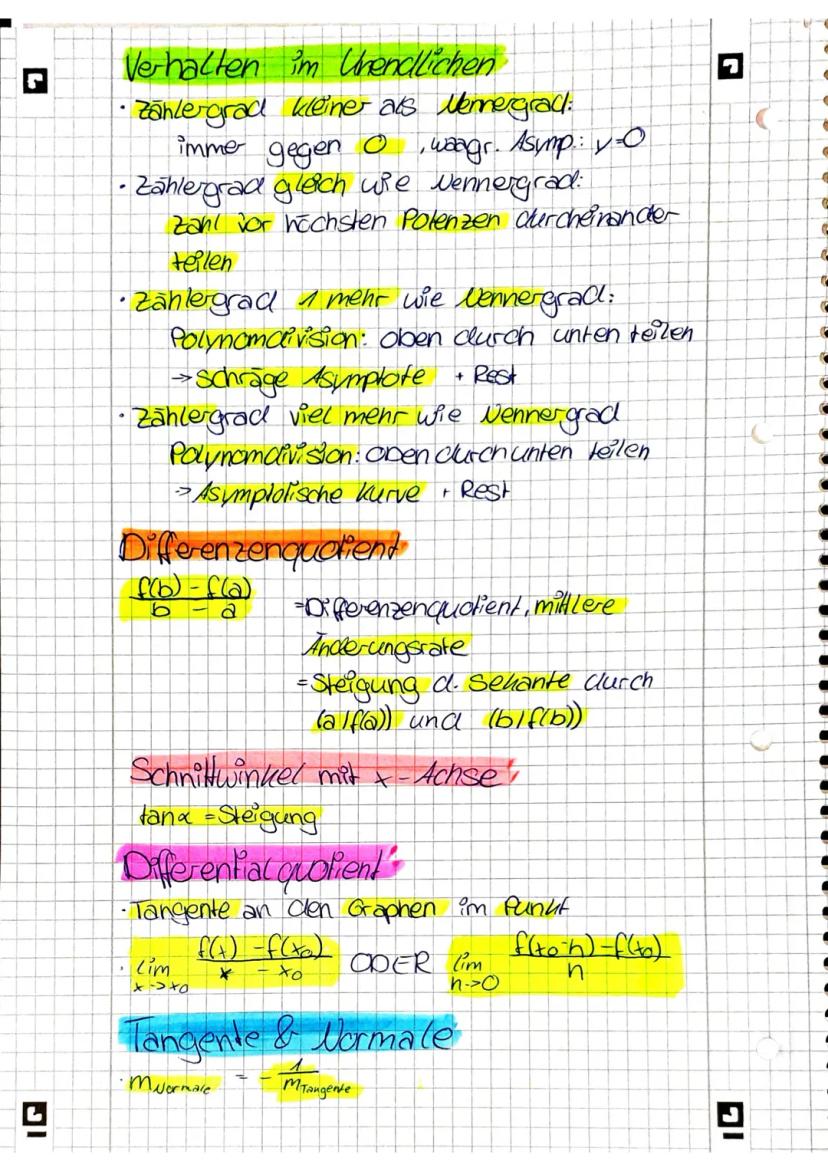 Verhalten im Unendlichen
· Zählergrad kleiner als Nennergrad:
immer gegen 0 , waagr. Asymp.: y=0
· Zählergrad gleich wie Nennergrad:
Zahl vor höchsten Potenzen durcheinander
teilen
· Zählergrad 1 mehr wie Nennergrad:
Polynomdivision: oben durch unten teilen
→ schräge Asymptote + Rest
· Zählergrad viel mehr wie Nennergrad
Polynomdivision: oben durch unten teilen
→ Asymptotische Kurve + Rest
Differenzenquotient
f(b) - f(a)
b - a
= Differenzenquotient, mittlere
Änderungsrate
= Steigung d. Sekante durch
(a/f(a)) und (b/f(b))
Schnittwinkel mit x-Achse
tanα = Steigung
Differentialquotient
· Tangente an den Graphen im Punkt
· lim x->x0 f(x) - f(x0) / x - x0 ODER lim h->0 f(x0-h)-f(x0) / h
Tangente & Normale
· mNormale = - 1 / mTangente